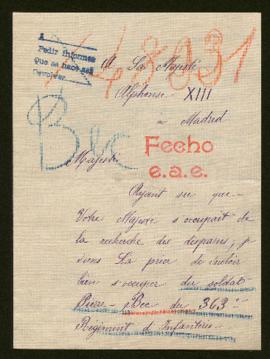 A
Pedir informes
que se hace sea
48031
A Sa Majesté
Alphonse XIII
à Madrid
Bec
Majesté
Fecho
e.a.e.
Ayant su que
Votre Majesté s'occupait de
la recherche des disparus, je
viens La prier de vouloir
bien s'occuper du soldat
Pierre Bec du 363e
Régiment d'Infanterie.